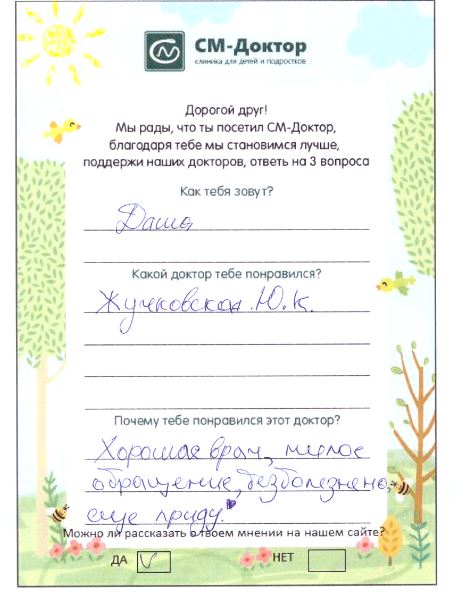 СМ-Доктор
клиника для детей и подростков
Дорогой друг!
Мы рады, что ты посетил СМ-Доктор,
благодаря тебе мы становимся лучше,
поддержи наших докторов, ответь на 3 вопроса
Как тебя зовут?
Даша
Какой доктор тебе понравился?
Жучковская Ю.К.
Почему тебе понравился этот доктор?
Хороший врач, милое
обращение, безболезнено,
еще приду.
Можно ли рассказать о твоем мнении на нашем сайте?
ДА V НЕТ